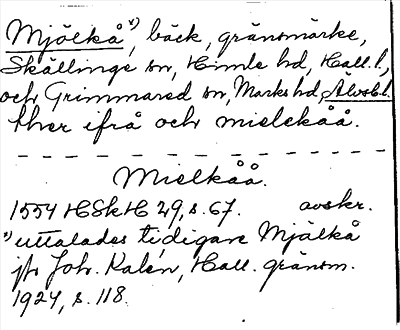 Mjölkå x), bäck, gränsmärke,
Skällinge sn, Himle hd, Hall. l.,
och Grimmared sn, Marks hd, Älvsb. l.
ther ifrå och mielckåå.
Mielkåå.
1554 HSkH 29, s. 67. avskr.
x) uttalades tidigare Mjälkå
jfr Joh. Kalén, Hall. gränsm.
1924, s. 118.